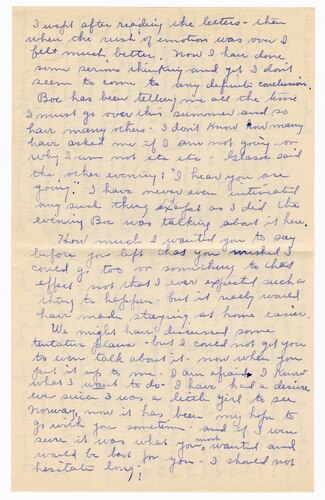 I wept after reading the letters - then
when the rush of emotion was over I
felt much better. Now I have done
some serious thinking and yet I don't
seem to come to any definite conclusion.
Boe has been telling me all the time
I must go over this summer and so
have many others. I don't know how many
have asked me if I am not going - or
why I am not etc etc - said
the other evening: "I hear you are
going." I have never even intimated
any such thing except as I did the
evening Boe was talking about it here.
How much I wanted you to say
before you left that you wished I
could go too or something to that
effect not that I ever expected such a
thing to happen - but it really would
have made staying at home easier.
We might have discussed some
tentative plans - but I could not get you
to even talk about it. now when you
put it up to me - I am afraid I know
what I want to do. I have had a desire
ever since I was a little girl to see
Norway, now it has been my hope to
go with you sometime - and if I were
sure it was what you most wanted and
would be best for you - I should not
hesitate long!